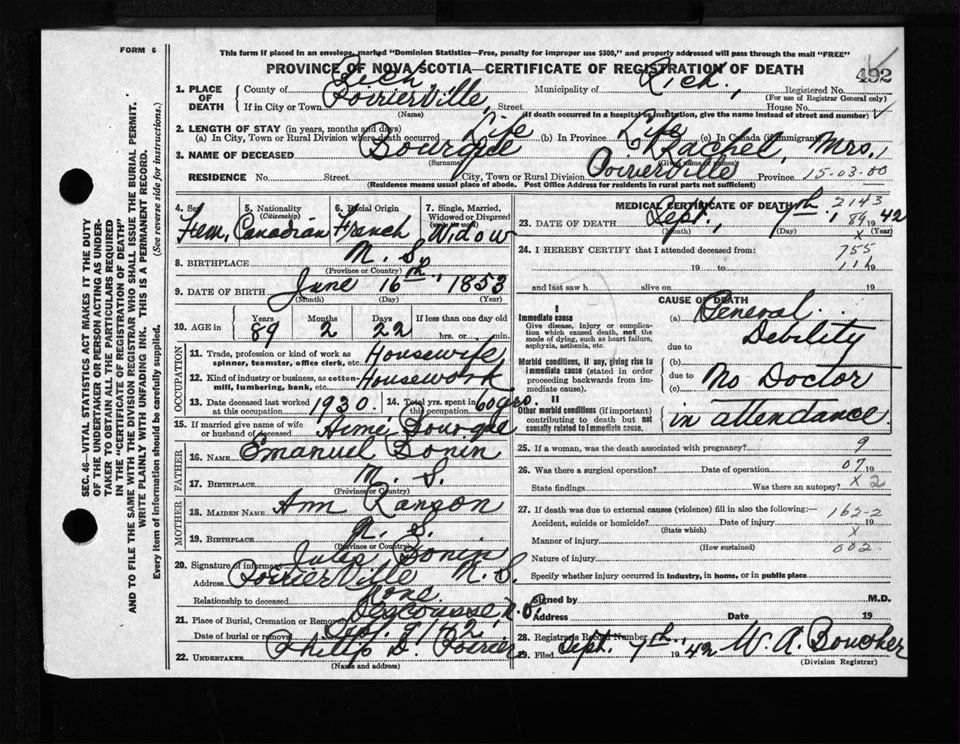 FORM 6
This form if placed in an envelope, marked "Dominion Statistics—Free, penalty for improper use $300," and properly addressed will pass through the mail "FREE"
PROVINCE OF NOVA SCOTIA—CERTIFICATE OF REGISTRATION OF DEATH
492
1. PLACE OF DEATH County of Rich. Municipality of Rich. Registered No.
(For use of Registrar General only)
If in City or Town Poirierville, Street House No.
(Name) (If death occurred in a hospital or institution, give the name instead of street and number)
2. LENGTH OF STAY (in years, months and days)
(a) In City, Town or Rural Division where death occurred Life (b) In Province Life (c) In Canada (if immigrant)
3. NAME OF DECEASED Bourque Rachel, Mrs.
(Surname) (Given name or names)
RESIDENCE No. Street City, Town or Rural Division Poirierville Province 15-03-00
(Residence means usual place of abode. Post Office Address for residents in rural parts not sufficient)
4. Sex Fem. 5. Nationality (Citizenship) Canadian 6. Racial Origin French 7. Single, Married, Widowed or Divorced Widow
8. BIRTHPLACE N. S.
(Province or Country)
9. DATE OF BIRTH June 16th, 1853
(Month) (Day) (Year)
10. AGE in Years 89 Months 2 Days 22 If less than one day old hrs. or min.
OCCUPATION
11. Trade, profession or kind of work as spinner, teamster, office clerk, etc. Housewife
12. Kind of industry or business, as cotton mill, lumbering, bank, etc. Housework
13. Date deceased last worked at this occupation 1930. 14. Total yrs. spent in this occupation 60 yrs.
15. If married give name of wife or husband of deceased Aimé Bourque
FATHER
16. NAME Emanuel Bonin
17. BIRTHPLACE N. S.
(Province or Country)
MOTHER
18. MAIDEN NAME Ann
19. BIRTHPLACE N. S.
(Province or Country)
20. Signature of informant Bonin
Address Poirierville N. S.
Relationship to deceased None
21. Place of Burial, Cremation or Removal N. S.
Date of burial or removal
22. UNDERTAKER Philip D. Poirier
(Name and address)
MEDICAL CERTIFICATE OF DEATH
2143
23. DATE OF DEATH Sept. 7th, 1942
(Month) (Day) (Year)
89
x
24. I HEREBY CERTIFY that I attended deceased from: 755
19 to 111 19
and last saw h alive on 19
CAUSE OF DEATH
I
Immediate cause
Give disease, injury or complication which caused death, not the mode of dying, such as heart failure, asphyxia, asthenia, etc.
(a) General Debility
due to
Morbid conditions, if any, giving rise to immediate cause (stated in order proceeding backwards from immediate cause).
(b)
due to
(c)
No Doctor in attendance
II
Other morbid conditions (if important) contributing to death but not causally related to immediate cause.
25. If a woman, was the death associated with pregnancy? 9
26. Was there a surgical operation? Date of operation 07 19
State findings Was there an autopsy? x 2
27. If death was due to external causes (violence) fill in also the following:— 162-2
Accident, suicide or homicide? Date of injury 19
(State which) x
Manner of injury 002
(How sustained)
Nature of injury
Specify whether injury occurred in industry, in home, or in public place
Signed by M.D.
Address Date 19
28. Registrar's Record Number
29. Filed Sept. 7th, 1942 W. A. Boucher
(Division Registrar)
SEC. 46—VITAL STATISTICS ACT MAKES IT THE DUTY
OF THE UNDERTAKER OR PERSON ACTING AS UNDERTAKER TO OBTAIN ALL THE PARTICULARS REQUIRED
IN THE "CERTIFICATE OF REGISTRATION OF DEATH"
AND TO FILE THE SAME WITH THE DIVISION REGISTRAR WHO SHALL ISSUE THE BURIAL PERMIT.
WRITE PLAINLY WITH UNFADING INK. THIS IS A PERMANENT RECORD.
Every item of information should be carefully supplied. (See reverse side for instructions.)